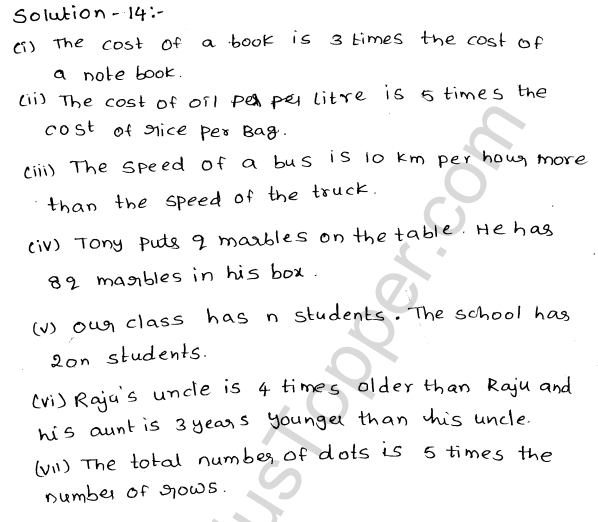 Solution - 14:-
(i) The cost of a book is 3 times the cost of
a note book.
(ii) The cost of oil per litre is 5 times the
cost of rice per Bag.
(iii) The speed of a bus is 10 km per hour more
than the speed of the truck.
(iv) Tony puts q marbles on the table. He has
8q marbles in his box.
(v) our class has n students. The school has
20n students.
(vi) Raju's uncle is 4 times older than Raju and
his aunt is 3 years younger than his uncle.
(vii) The total number of dots is 5 times the
number of rows.
usTopper.com